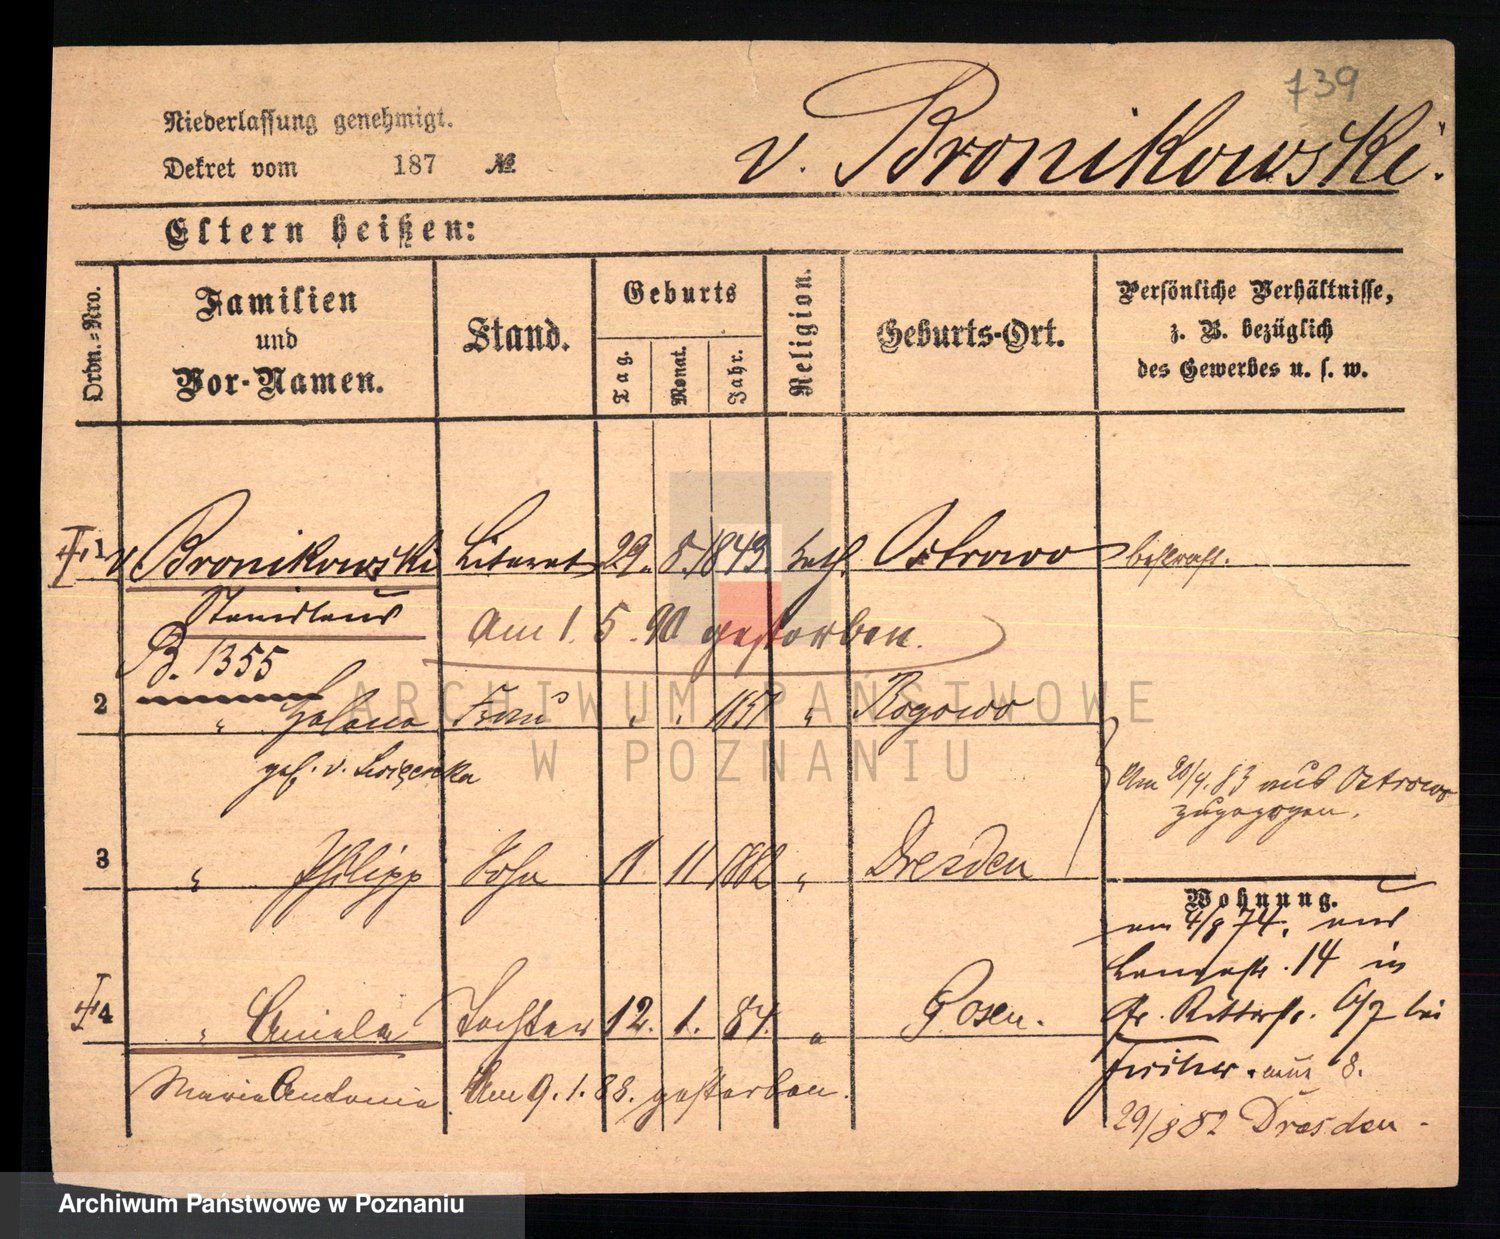 739
Niederlassung genehmigt.
Dekret vom 187 №
v. Bronikowski.
Eltern heißen:
Ordn.-Nro.
Familien und Vor-Namen.
Stand.
Geburts
Tag.
Monat.
Jahr.
Religion.
Geburts-Ort.
Persönliche Verhältnisse,
z. B. bezüglich
des Gewerbes u. s. w.
1 v Bronikowski Literat 29. 8. 1843 kath. Ostrowo bestraft.
Stanislaus
Am 1. 5. 90 gestorben.
B. 1355
2 " Helena Frau " " 1857 " Rogowo
geb. v. Swięcicka
Am 20/4. 83 aus Ostrowo
zugezogen.
3 " Philipp Sohn 11 11 1882 " Dresden
Wohnung.
am 4/8 74. aus
Langestr. 14 in
Gr. Ritterstr. bei
4 " Aniela Tochter 12. 1. 84. " Posen.
8.
Maria Antonie Am 9. 1. 88. gestorben.
29/8 82 Dresden -
ARCHIWUM PAŃSTWOWE
W POZNANIU
Archiwum Państwowe w Poznaniu